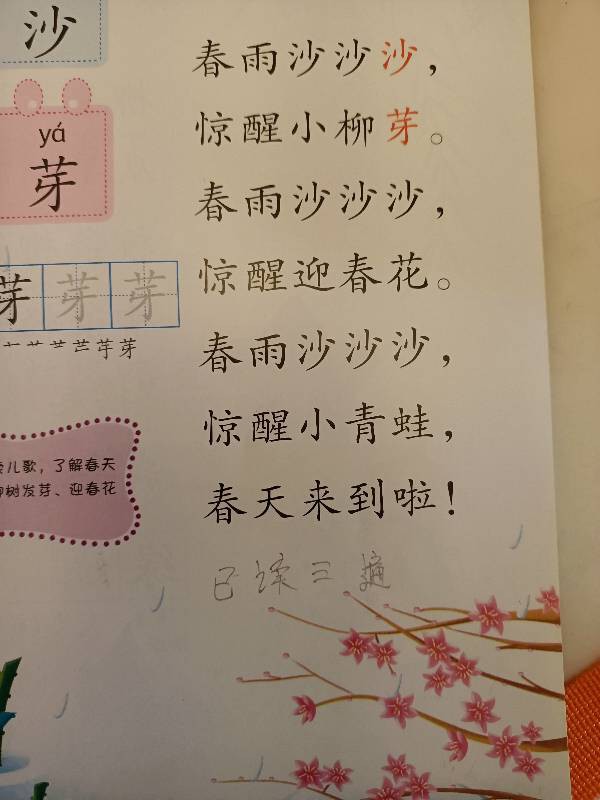 沙
yá
芽
芽芽芽
芽
儿歌，了解春天
树发芽、迎春花
春雨沙沙沙，
惊醒小柳芽。
春雨沙沙沙，
惊醒迎春花。
春雨沙沙沙，
惊醒小青蛙，
春天来到啦！
已读三遍